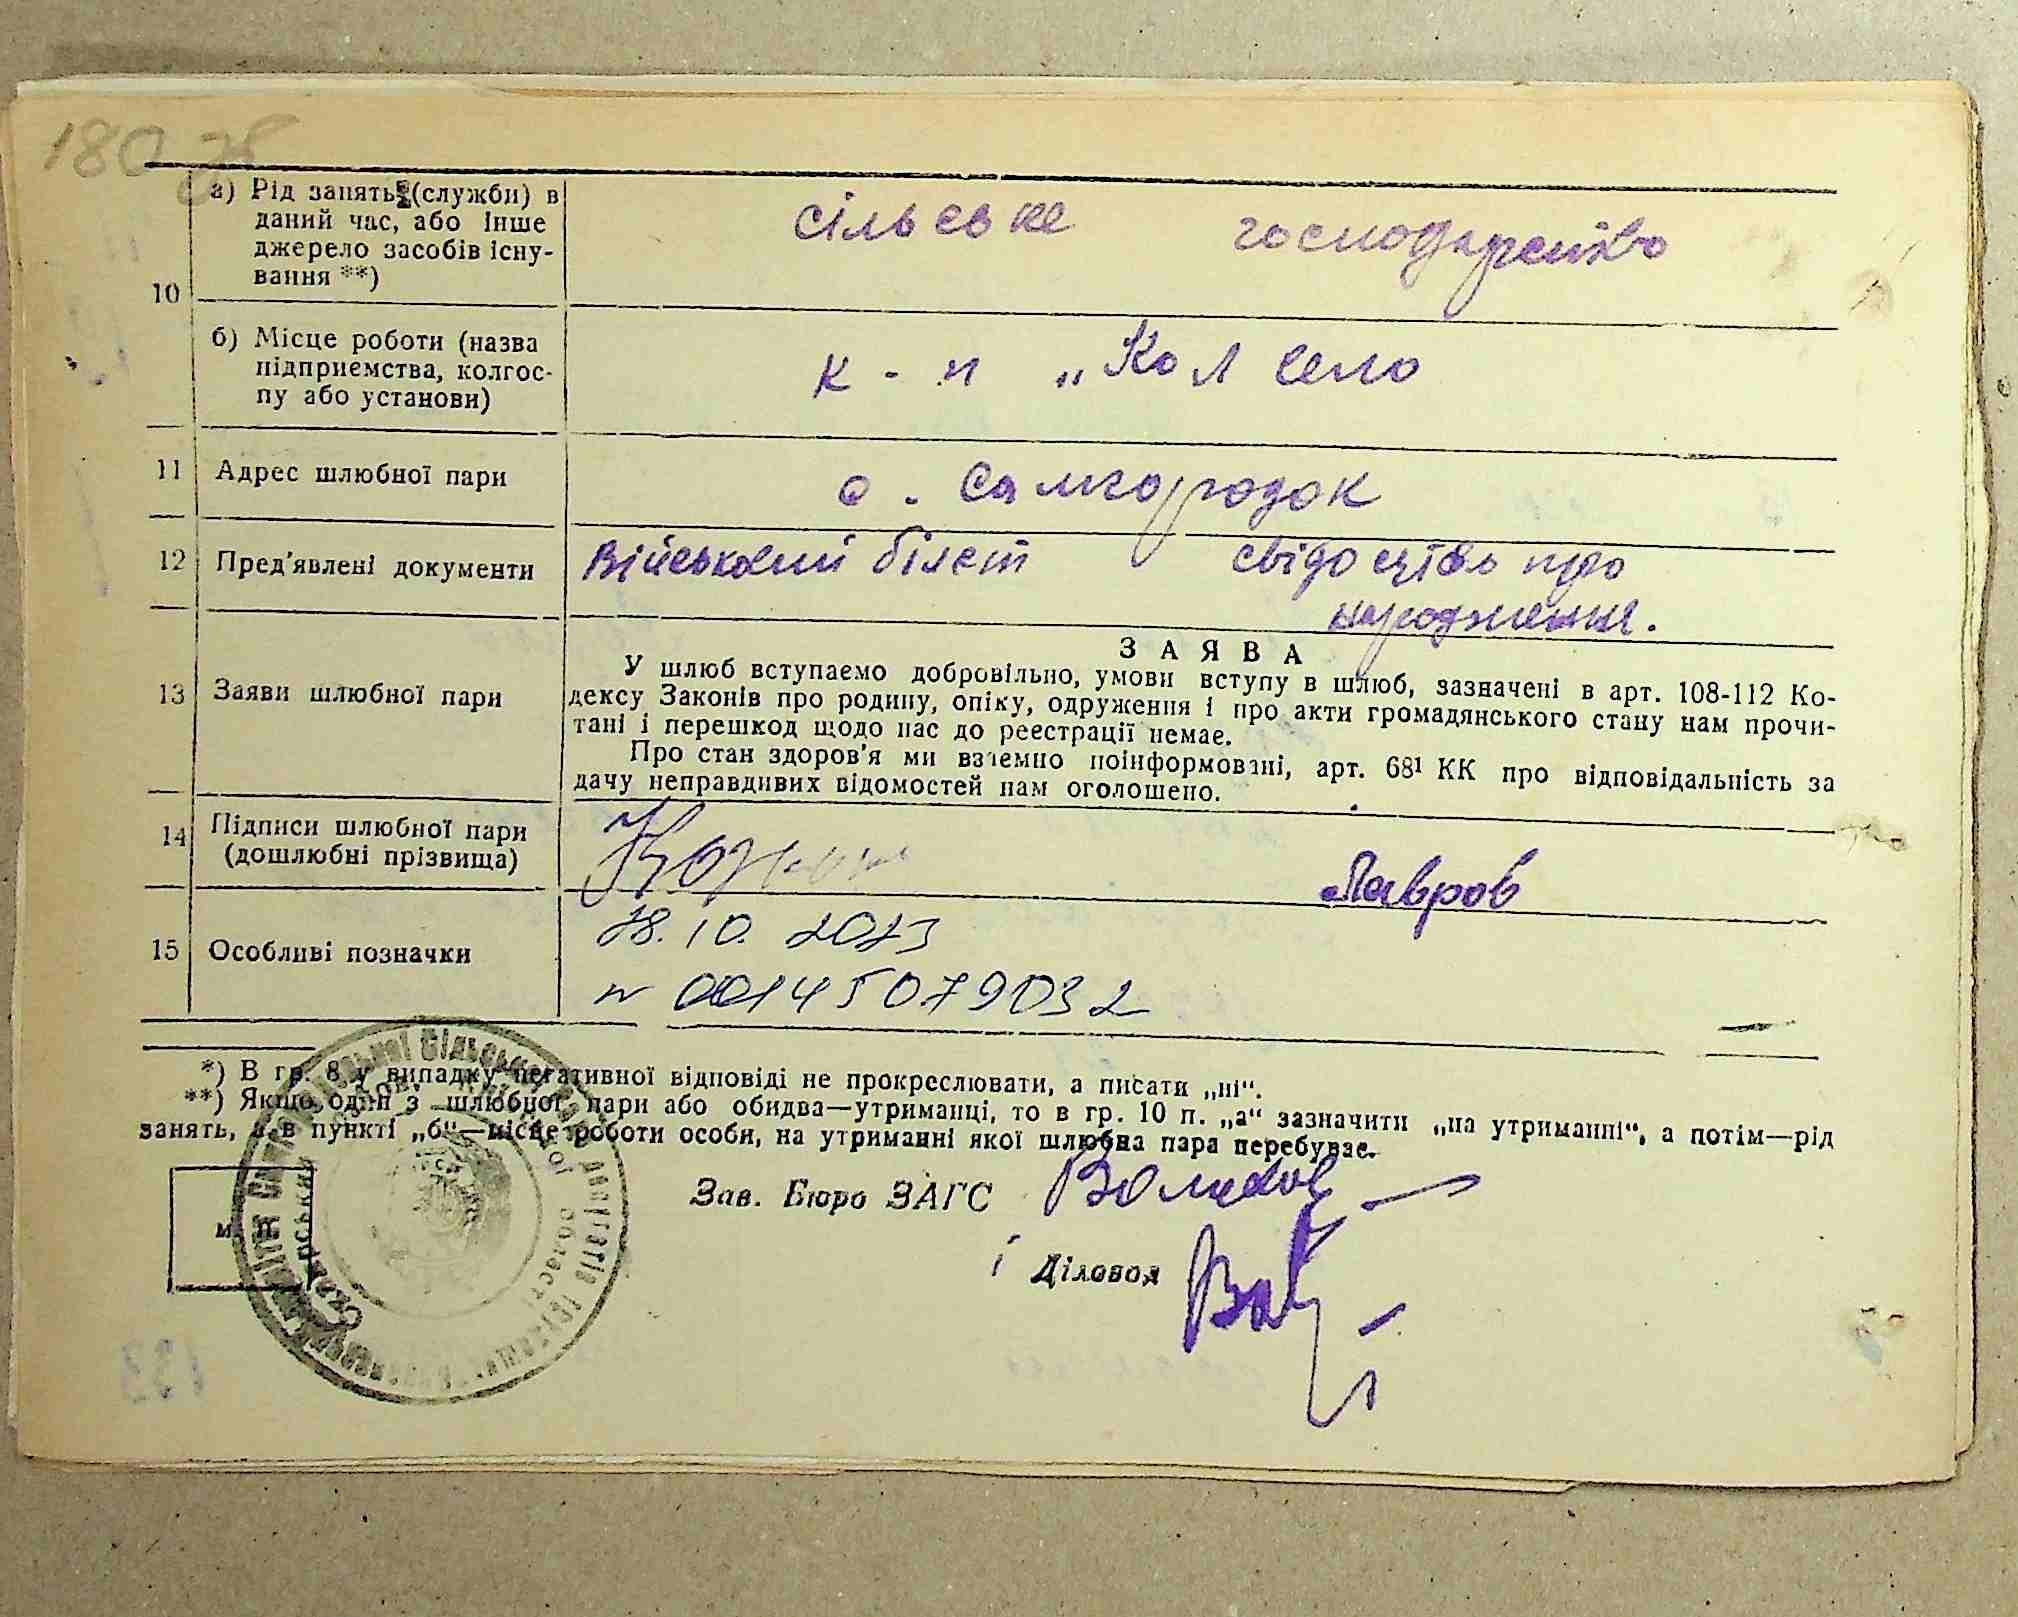 180 зв
10
а) Рід занять (служби) в
даний час, або інше
джерело засобів існу-
вання **)
сільське господарство
б) Місце роботи (назва
підприємства, колгос-
пу або установи)
к-п „Кол село
11 Адрес шлюбної пари
с. Самгородок
12 Пред'явлені документи
Військовий білет свідоцтво про
народження.
13 Заяви шлюбної пари
ЗАЯВА
У шлюб вступаємо добровільно, умови вступу в шлюб, зазначені в арт. 108-112 Ко-
дексу Законів про родину, опіку, одруження і про акти громадянського стану нам прочи-
тані і перешкод щодо нас до реестрації немае.
Про стан здоров'я ми взаемно поінформовані, арт. 68¹ КК про відповідальність за
дачу неправдивих відомостей нам оголошено.
14 Підписи шлюбної пари
(дошлюбні прізвища)
Лавров
15 Особливі позначки
28.10.2023
№ 00145079032
*) В гр. 8 у випадку негативної відповіді не прокреслювати, а писати „ні“.
**) Якщо один з шлюбної пари або обидва—утриманці, то в гр. 10 п. „а“ зазначити „на утриманні“, а потім—рід
занять, а в пункті „б“—місце роботи особи, на утриманні якої шлюбна пара перебувае.
м. п.
Зав. Бюро ЗАГС
і Діловод
133